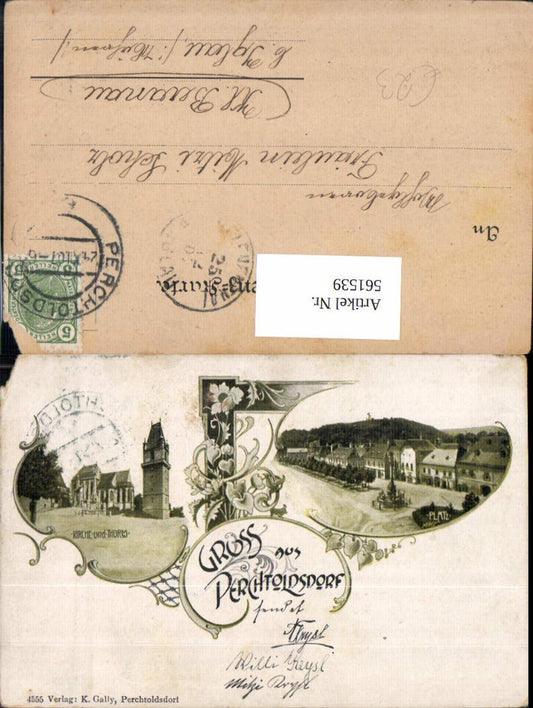 An
Wohlgeboren
Fräulein Mitzi Scholz
Kl. Beranau
b. Iglau /: Mähren :/
C23
5
HELLER
PERCHTOLDSD
25
Artikel Nr.
561539
KIRCHE und THURM
PLATZ
GRUSS aus
PERCHTOLDSDORF
sendet
Willi
Mitzi
4555 Verlag: K. Gally, Perchtoldsdorf